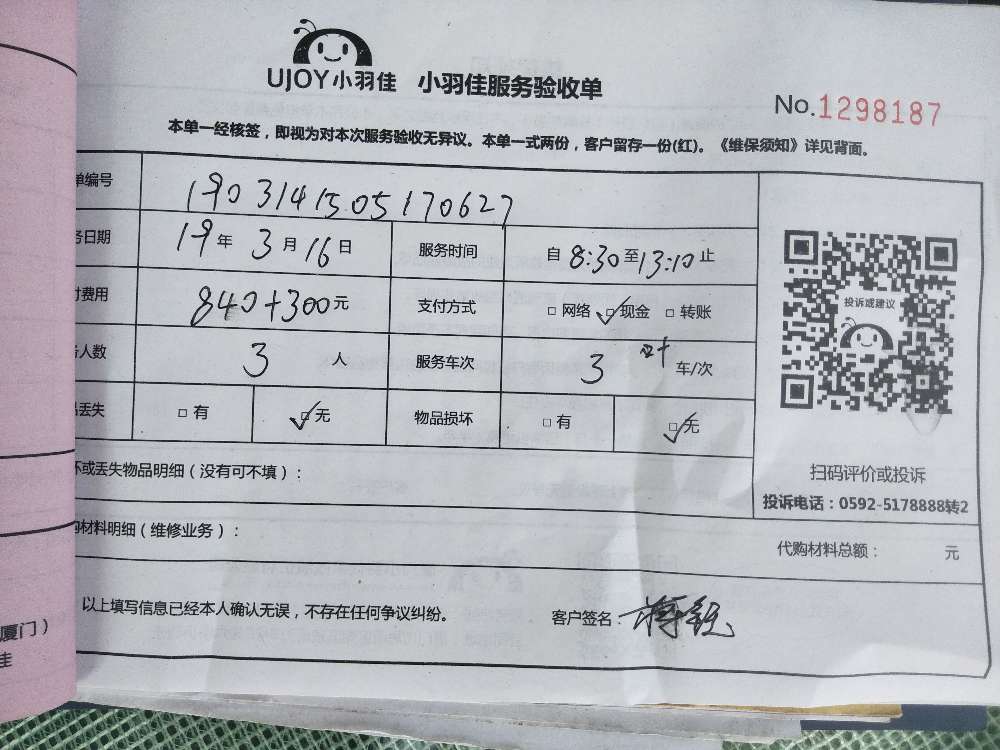 UJOY小羽佳 小羽佳服务验收单
No.1298187
本单一经核签，即视为对本次服务验收无异议。本单一式两份，客户留存一份(红)。《维保须知》详见背面。
单编号 1903141505170627
务日期 19年3月16日 服务时间 自8:30至13:10止
付费用 840+300元 支付方式 □网络 ☑现金 □转账
务人数 3人 服务车次 3 车/次
品丢失 □有 ☑无 物品损坏 □有 ☑无
投诉或建议
扫码评价或投诉
投诉电话：0592-5178888转2
坏或丢失物品明细（没有可不填）：
购材料明细（维修业务）：
代购材料总额： 元
以上填写信息已经本人确认无误，不存在任何争议纠纷。 客户签名：
厦门）
佳